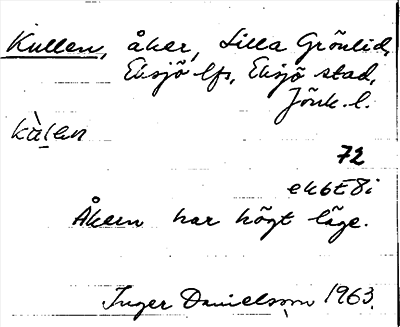 Kullen, åker, Lilla Grönlid,
Eksjö lfs, Eksjö stad,
Jönk. l.
kàlen
72
ek6E8i
Åkern har högt läge.
Inger Danielsson 1963.